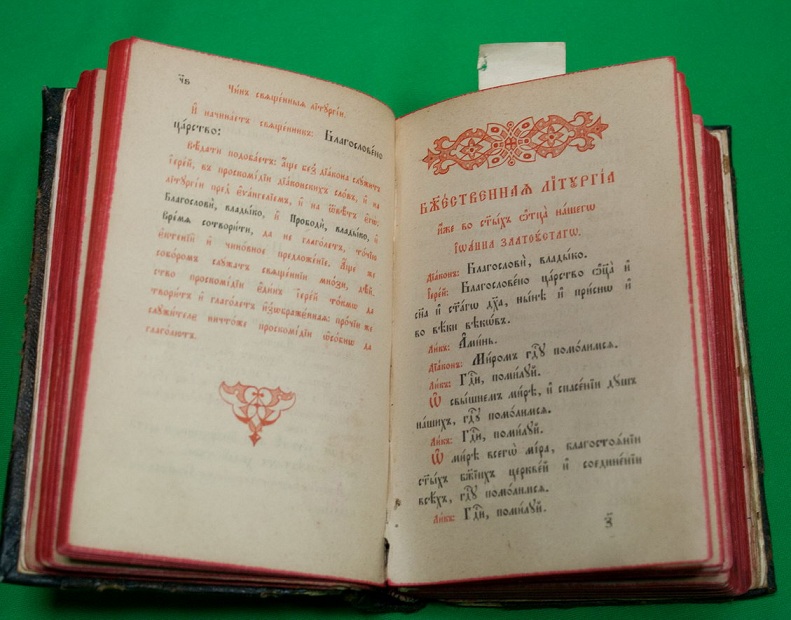 ч҃в
Чи́нъ свѧще́нныѧ лїтꙋргі́и.
И҆ начина́етъ свѧще́нникъ: Благослове́но
ца́рство:
Вѣ́дати подоба́етъ: а҆́ще без̾ дїа́кона слꙋ́житъ
і҆ере́й, въ проскомі́дїи дїа́конскихъ сло́въ, и҆ на
лїтꙋргі́и пред̾ є҆ѵⷢ҇а́нгелїемъ, и҆ на ѿвѣ́тъ є҆гѡ̀:
Благословѝ, влады́ко, и҆ Прободѝ, влады́ко, и҆
Вре́мѧ сотвори́ти, да не глаго́летъ, то́чїю
є҆ктенїѝ и҆ чино́вное предложе́нїе. А҆́ще же
собо́ромъ слꙋ́жатъ свѧще́нницы мно́зи, дѣ́й-
ство проскомі́дїи є҆ди́нъ і҆ере́й то́кмѡ да
твори́тъ и҆ глаго́летъ и҆з̾ѡбраже́ннаѧ: про́чїи же
слꙋжи́телїе ничто́же проскомі́дїи ѡ҆со́бнѡ да
глаго́лютъ.
БЖ҃Е́СТВЕННАѦ ЛЇТꙊРГІ́А
и҆́же во ст҃ы́хъ ѻ҆тца̀ на́шегѡ
І҆ѡа́нна златоꙋ́стагѡ.
Дїа́конъ: Благословѝ, влады́ко.
І҆ере́й: Благослове́но ца́рство ѻ҆ц҃а̀ и҆
сн҃а и҆ ст҃а́гѡ дх҃а, ны́нѣ и҆ при́снѡ и҆
во вѣ́ки вѣкѡ́въ.
Ли́къ: А҆ми́нь.
Дїа́конъ: Ми́ромъ гдⷭ҇ꙋ помо́лимсѧ.
Ли́къ: Гдⷭ҇и, поми́лꙋй.
Ѡ҆ свы́шнемъ ми́рѣ, и҆ спасе́нїи дꙋ́шъ
на́шихъ, гдⷭ҇ꙋ помо́лимсѧ.
Ли́къ: Гдⷭ҇и, поми́лꙋй.
Ѡ҆ ми́рѣ всегѡ̀ мі́ра, благостоѧ́нїи
ст҃ы́хъ бж҃їихъ церкве́й и҆ соедине́нїи
всѣ́хъ, гдⷭ҇ꙋ помо́лимсѧ.
Ли́къ: Гдⷭ҇и, поми́лꙋй.